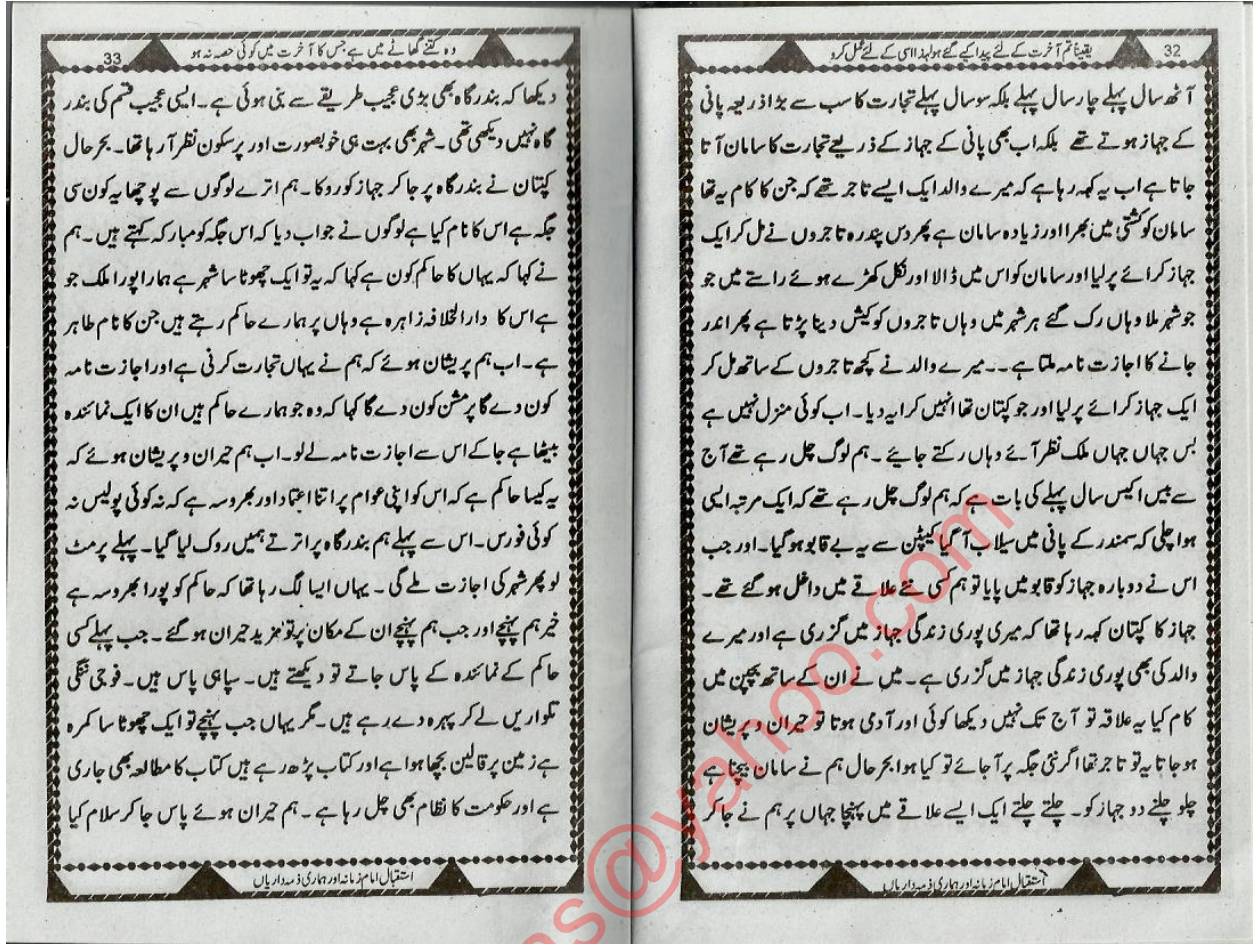 یقیناً تم آخرت کے لئے پیدا کیے گئے ہو لہذا اسی کے لئے عمل کرو
32
آٹھ سال پہلے چار سال پہلے بلکہ سو سال پہلے تجارت کا سب سے بڑا ذریعہ پانی
کے جہاز ہوتے تھے بلکہ اب بھی پانی کے جہاز کے ذریعے تجارت کا سامان آتا
جاتا ہے اب یہ کہہ رہا ہے کہ میرے والد ایک ایسے تاجر تھے کہ جن کا کام یہ تھا
سامان کو کشتی میں بھرا اور زیادہ سامان ہے پھر دس پندرہ تاجروں نے مل کر ایک
جہاز کرائے پر لیا اور سامان کو اس میں ڈالا اور نکل کھڑے ہوئے راستے میں جو
جو شہر ملا وہاں رک گئے ہر شہر میں وہاں تاجروں کو کیش دینا پڑتا ہے پھر اندر
جانے کا اجازت نامہ ملتا ہے۔۔ میرے والد نے کچھ تاجروں کے ساتھ مل کر
ایک جہاز کرائے پر لیا اور جو کپتان تھا انہیں کرایہ دیا۔ اب کوئی منزل نہیں ہے
بس جہاں جہاں ملک نظر آئے وہاں رکتے جایئے۔ ہم لوگ چل رہے تھے آج
سے بیس اکیس سال پہلے کی بات ہے کہ ہم لوگ چل رہے تھے کہ ایک مرتبہ ایسی
ہوا چلی کہ سمندر کے پانی میں سیلاب آ گیا کیپٹن سے یہ بے قابو ہو گیا۔ اور جب
اس نے دوبارہ جہاز کو قابو میں پایا تو ہم کسی نئے علاقے میں داخل ہو گئے تھے۔
جہاز کا کپتان کہہ رہا تھا کہ میری پوری زندگی جہاز میں گزری ہے اور میرے
والد کی بھی پوری زندگی جہاز میں گزری ہے۔ میں نے ان کے ساتھ بچپن میں
کام کیا یہ علاقہ تو آج تک نہیں دیکھا کوئی اور آدمی ہوتا تو حیران و پریشان
ہو جاتا یہ تو تاجر تھا اگر نئی جگہ پر آ جائے تو کیا ہوا بحر حال ہم نے سامان بیچنا ہے
چلو چلنے دو جہاز کو۔ چلتے چلتے ایک ایسے علاقے میں پہنچا جہاں پر ہم نے جا کر
استقبال امام زمانہ اور ہماری ذمہ داریاں
وہ کتنے گھاٹے میں ہے جس کا آخرت میں کوئی حصہ نہ ہو
33
دیکھا کہ بندرگاہ بھی بڑی عجیب طریقے سے بنی ہوئی ہے۔ ایسی عجیب قسم کی بندر
گاہ نہیں دیکھی تھی۔ شہر بھی بہت ہی خوبصورت اور پرسکون نظر آ رہا تھا۔ بحر حال
کپتان نے بندرگاہ پر جا کر جہاز کو روکا۔ ہم اترے لوگوں سے پوچھا یہ کون سی
جگہ ہے اس کا نام کیا ہے لوگوں نے جواب دیا کہ اس جگہ کو مبارکہ کہتے ہیں۔ ہم
نے کہا کہ یہاں کا حاکم کون ہے کہا کہ یہ تو ایک چھوٹا سا شہر ہے ہمارا پورا ملک جو
ہے اس کا دارالخلافہ زاہرہ ہے وہاں پر ہمارے حاکم رہتے ہیں جن کا نام طاہر
ہے۔ اب ہم پریشان ہوئے کہ ہم نے یہاں تجارت کرنی ہے اور اجازت نامہ
کون دے گا پرمشن کون دے گا کہا کہ وہ جو ہمارے حاکم ہیں ان کا ایک نمائندہ
بیٹھا ہے جا کے اس سے اجازت نامہ لے لو۔ اب ہم حیران و پریشان ہوئے کہ
یہ کیسا حاکم ہے کہ اس کو اپنی عوام پر اتنا اعتماد اور بھروسہ ہے کہ نہ کوئی پولیس نہ
کوئی فورس۔ اس سے پہلے ہم بندرگاہ پر اترتے ہمیں روک لیا گیا۔ پہلے پرمٹ
لو پھر شہر کی اجازت ملے گی۔ یہاں ایسا لگ رہا تھا کہ حاکم کو پورا بھروسہ ہے
خیر ہم پہنچے اور جب ہم پہنچے ان کے مکان پر تو مزید حیران ہو گئے۔ جب پہلے کسی
حاکم کے نمائندہ کے پاس جاتے تو دیکھتے ہیں۔ سپاہی پاس ہیں۔ فوجی ننگی
تلواریں لے کر پہرہ دے رہے ہیں۔ مگر یہاں جب پہنچے تو ایک چھوٹا سا کمرہ
ہے زمین پر قالین بچھا ہوا ہے اور کتاب پڑھ رہے ہیں کتاب کا مطالعہ بھی جاری
ہے اور حکومت کا نظام بھی چل رہا ہے۔ ہم حیران ہوئے پاس جا کر سلام کیا
استقبال امام زمانہ اور ہماری ذمہ داریاں
s@yahoo.com